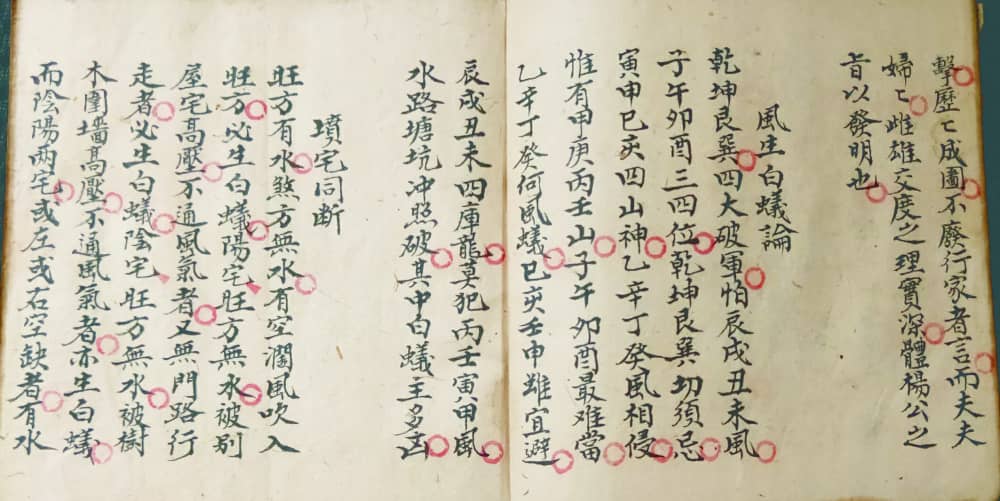 擊歷〻成圖不廢行家者言而夫夫
婦〻雌雄交度之理實深體楊公之
旨以發明也
風生白蟻論
乾坤艮巽四大破軍怕辰戌丑未風
子午卯酉三四位乾坤艮巽切須忌
寅申巳亥四山神乙辛丁癸風相侵
惟有甲庚丙壬山子午卯酉最难當
乙辛丁癸何風蟻巳亥壬申雖宜避
辰戌丑未四庫龍莫犯丙壬寅甲風
水路塘坑冲照破其中白蟻主多凶
墳宅同斷
旺方有水煞方無水有空濶風吹入
旺方必生白蟻陽宅旺方無水被别
屋宅高壓不通風氣者又無門路行
走者必生白蟻陰宅旺方無水被樹
木圍墻高壓不通風氣者亦生白蟻
而陰陽兩宅或左或右空缺者有水